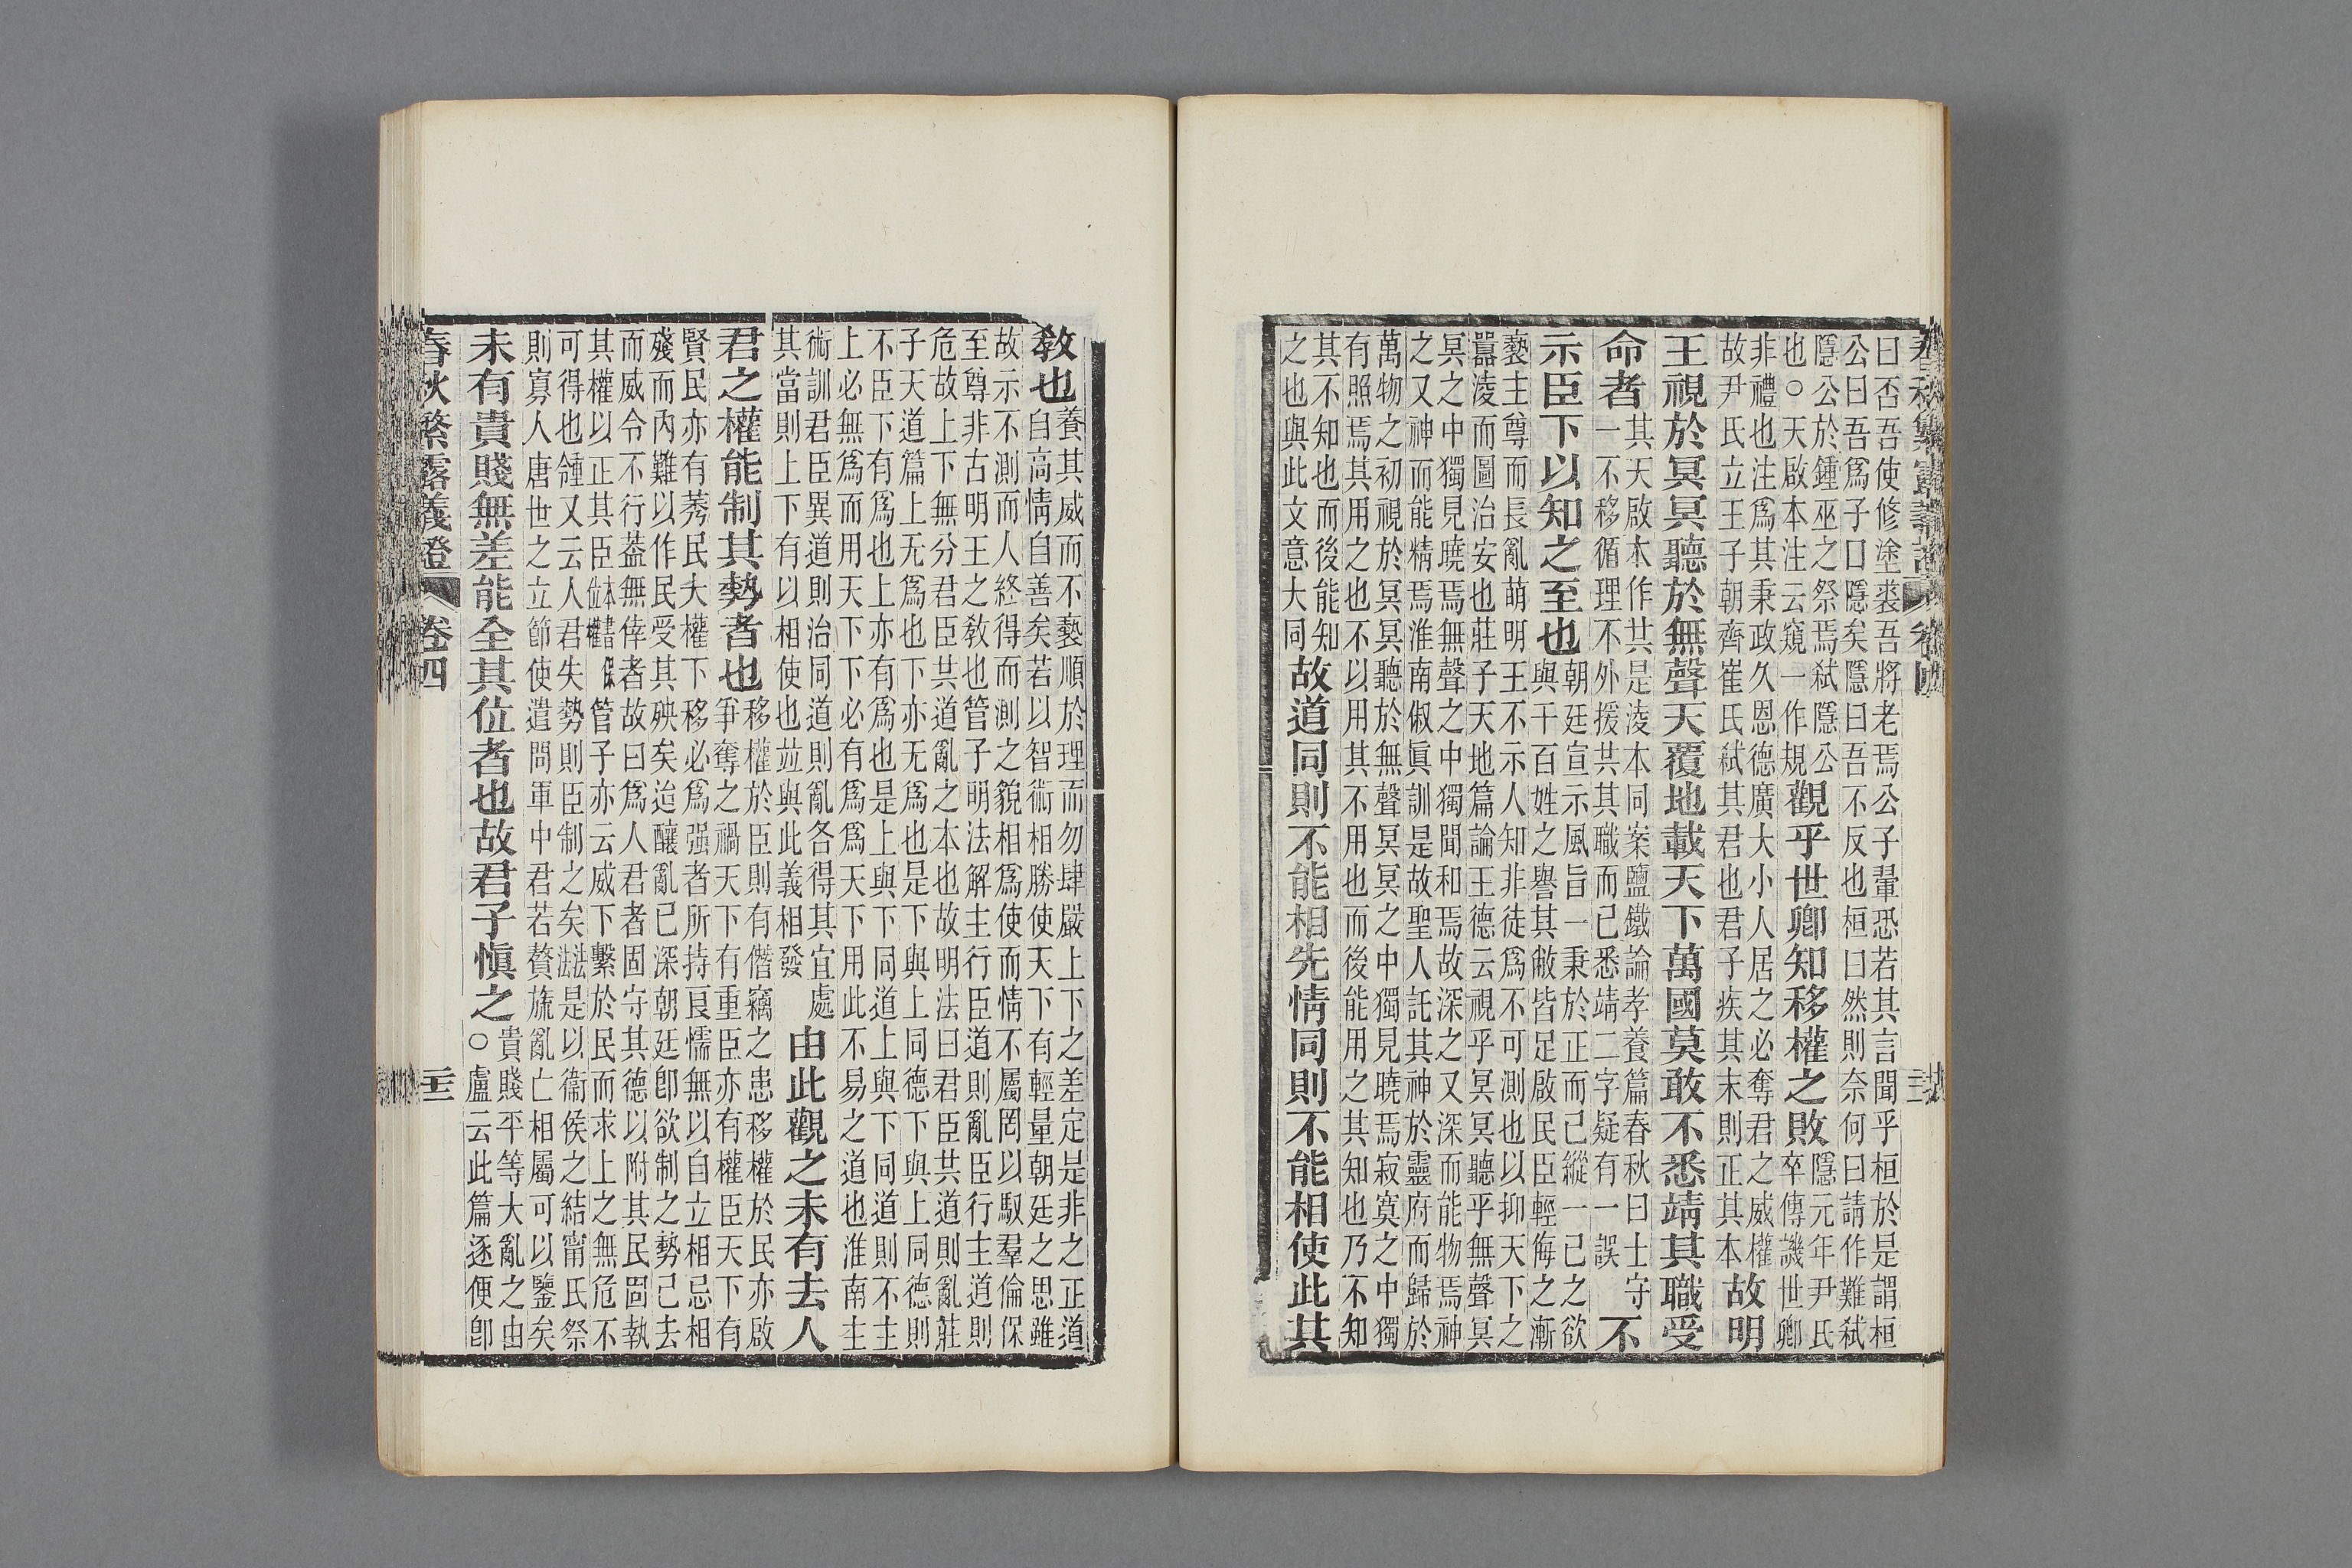 曰否吾使修塗裘吾將老焉公子翬恐若其言聞乎桓於是謂桓
公曰吾爲子口隱矣隱曰吾不反也桓曰然則奈何曰請作難弒
隱公於鍾巫之祭焉弒隱公
也○天啟本注云窺一作規
觀乎世卿知移權之敗
隱元年尹氏
卒傳譏世卿
非禮也注爲其秉政久恩德廣大小人居之必奪君之威權
故尹氏立王子朝齊崔氏弒其君也君子疾其末則正其本
故明
王視於冥冥聽於無聲天覆地載天下萬國莫敢不悉靖其職受
命者
其天啟本作其是淩本同案鹽鐵論孝養篇春秋曰士守
一不移循理不外援共其職而已悉靖二字疑有一誤
不
示臣下以知之至也
朝廷宣示風旨一秉於正而已縱一己之欲
與千百姓之譽其敝皆足啟民臣輕侮之漸
褻主尊而長亂萌明王不示人知非徒爲不可測也以抑天下之
囂淩而圖治安也莊子天地篇論王德云視乎冥冥聽乎無聲冥
冥之中獨見曉焉無聲之中獨聞和焉故深之又深而能物焉神
之又神而能精焉淮南俶眞訓是故聖人託其神於靈府而歸於
萬物之初視於冥冥聽於無聲冥冥之中獨見曉焉寂寞之中獨
有照焉其用之也不以用其不用也而後能用之其知也乃不知
其不知也而後能知
之也與此文意大同
故道同則不能相先情同則不能相使此其
敎也
養其威而不褻順於理而勿肆嚴上下之差定是非之正道
自高情自善矣若以智術相勝使天下有輕量朝廷之思雖
故示不測而人終得而測之貌相爲使而情不屬罔以馭羣倫保
至尊非古明王之敎也管子明法解主行臣道則亂臣行主道則
危故上下無分君臣共道亂之本也故明法曰君臣共道則亂莊
子天道篇上无爲也下亦无爲也是下與上同德下與上同德則
不臣下有爲也上亦有爲也是上與下同道上與下同道則不主
上必無爲而用天下下必有爲爲天下用此不易之道也淮南主
術訓君臣異道則治同道則亂各得其宜處
其當則上下有以相使也竝與此義相發
由此觀之未有去人
君之權能制其勢者也
移權於臣則有僭竊之患移權於民亦啟
爭奪之禍天下有重臣亦有權臣天下有
賢民亦有莠民大權下移必爲强者所持艮懦無以自立相忌相
殘而內難以作民受其殃矣迨釀亂已深朝廷卽欲制之勢已去
而威令不行葢無倖者故曰爲人君者固守其德以附其民固執
其權以正其臣
本書保
位權
管子亦云威下繫於民而求上之無危不
可得也雒又云人君失勢則臣制之矣
法
法
是以衞侯之結甯氏祭
則寡人唐世之立節使遣問軍中君若贅旒亂亡相屬可以鑒矣
未有貴賤無差能全其位者也故君子愼之
貴賤平等大亂之由
○盧云此篇逐便卽
春秋繁露義證
卷四